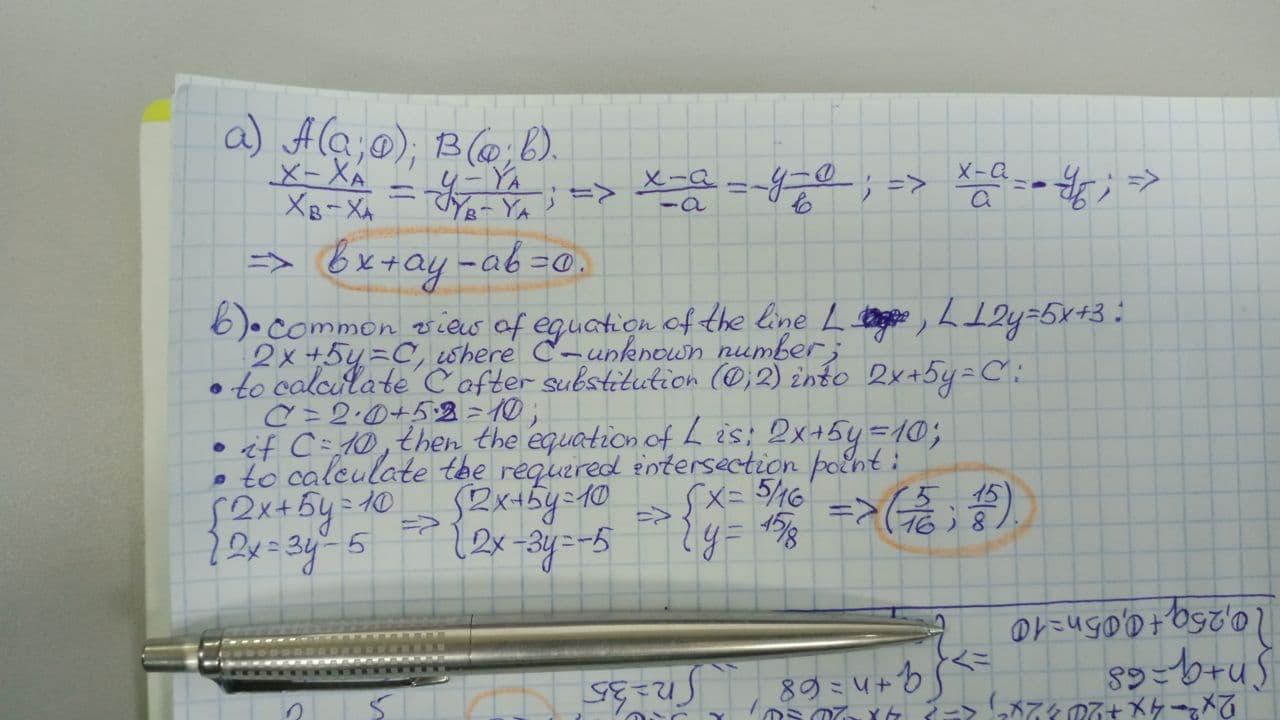 a) A(a;0); B(0;b).
(x-x_A)/(x_B-x_A) = (y-y_A)/(y_B-y_A); => (x-a)/(-a) = (y-0)/b; => (x-a)/a = -y/b; =>
=> bx+ay-ab=0.
b)• common view of equation of the line L, L⊥2y=5x+3:
2x+5y=C, where C-unknown number;
• to calculate C after substitution (0;2) into 2x+5y=C:
C=2·0+5·2=10;
• if C=10, then the equation of L is: 2x+5y=10;
• to calculate the required intersection point:
{2x+5y=10 => {2x+5y=10 => {x=5/16 => (5/16; 15/8).
{2x=3y-5 {2x-3y=-5 {y=15/8
0,25q+0,05n=10
n+q=68 => q+n=68
n=35